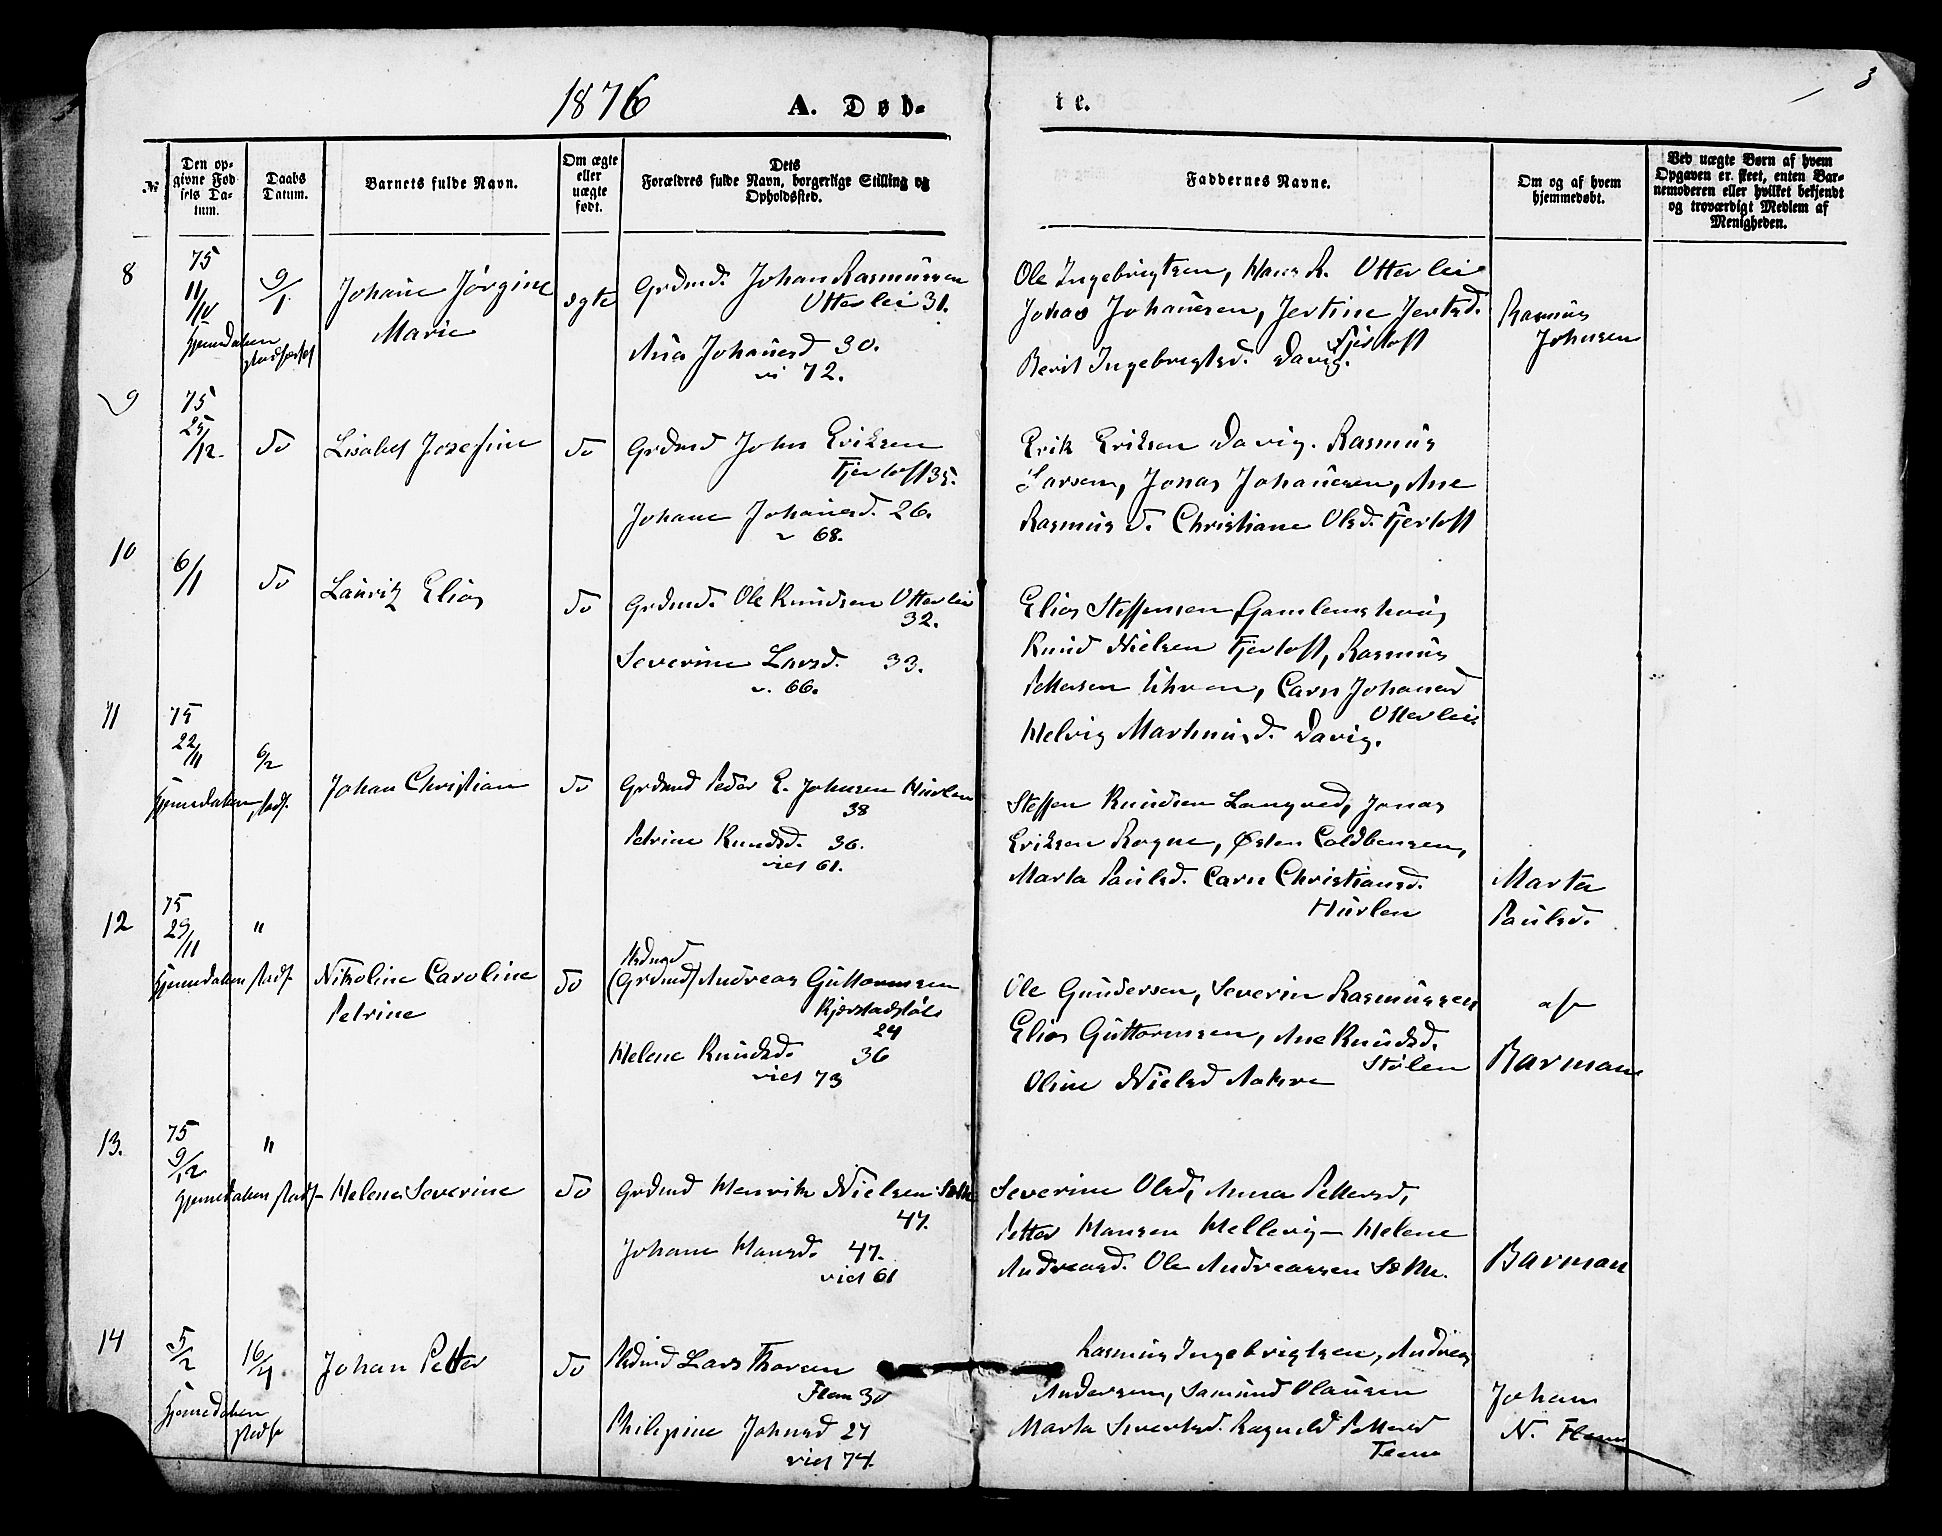 1876 A. Døb-
te.
3
№
Den op-
givne Fød
sels Da-
tum.
Daabs
Datum.
Barnets fulde Navn.
Om ægte
eller
uægte
født.
Dets
Forældres fulde Navn, borgerlige Stilling og
Opholdssted.
Faddernes Navne.
Om og af hvem
hjemmedøbt.
Ved uægte Børn af hvem
Opgaven er skeet, enten Bar-
nemoderen eller hvilket bekjendt
og troværdigt Medlem af
Menigheden.
8
75
11/
9/1
Johane Jørgine
Marie
ægte
Grdmd. Johan Rasmussen
Otterlei 31.
Ana Johansd 30.
vi 72.
Ole Ingebrigtsen, Hans R. Otterlei
Johas Johansen, Jertine Jertsd.
Fjertoft
Berit Ingebrigtsd. Davig.
Rasmus
Johnsen
Hjemdaaben
stadfæstet
9
75
25/12.
do
Lisabet Josefine
do
Grdmd John Eriksen
Fjertoft 35.
Johane Johansd. 26.
v 68.
Erik Eriksen Davig. Rasmus
Larsen, Jonas Johansen, Ane
Rasmusd. Christiane Olsd. Fjertoft
10
6/1
do
Lauritz Elias
do
Grdmd. Ole Knudsen Otterlei
32.
Severine Larsd. 33.
v. 66.
Elias Steffensen Gamlemshaug
Knud Nielsen Fjertoft, Rasmus
Pettersen Uhren, Carn Johansd
Otterlei
Helvig Martinusd. Davig.
11
75
22/11
6/2
Johan Christian
do
Grdmd Peder E. Johnsen Hurlen
38
Petrine Knudsd. 36.
viet 61.
Steffen Knudsen Langved, Jonas
Eriksen Rogne, Østen Coldbensen,
Marta Paulsd. Carn Christiansd.
Hurlen
Marta
Paulsd.
Hjemedaaben stadf.
12
75
29/11
"
Hjemedaaben stadf.
Nikoline Caroline
Petrine
do
(Grdmd) Andreas Guttormsen
Kjerstadstøls
24
Helene Knudsd. 36
viet 73
Ole Gundersen, Severin Rasmussen
Elias Guttormsen, Ane Knudsd.
Stølen
Oline Nielsd Aakre
af
Barman
13.
75
9/12
"
Hjemedaaben stadf.
Helene Severine
do
Grdmd Henrik Nielsen
47.
Johane Hansd. 47.
viet 61
Severine Olsd, Anna Pettersd,
Petter Hansen Hellevig – Helene
Andreasd. Ole Andreassen
Barman
14
5/2
16/4
Johan Petter
do
Lars Thoresen
Flem 30
Philipine Johnsd 27
viet 74.
Rasmus Ingebrigtsen, Andreas
Andersen, Samund Olausen
Marta Sivertsd. Ragnild Pettersd
Johan
N. Flem
Hjemedaaben
stadf